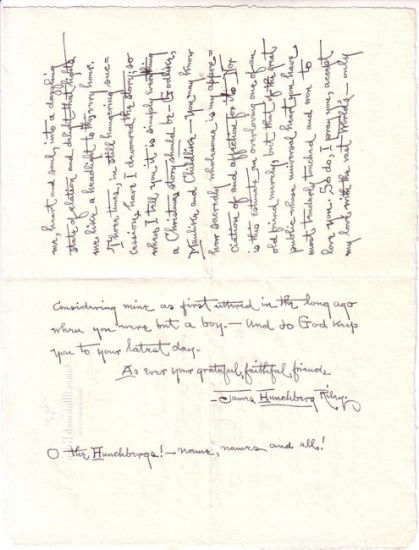 me, heart and soul, into a dazzling
state of elation and delight that lights
me like a headlight to this very hour.
Three times, in still hungering suc=
cessions have I devoured the story: so
when I tell you it is simply everything
a Christmas story should be – Godlike,
Manlike and Childlike – You may know
how sacredly wholesome is my appre=
ciation of and affection for it. Nor
is this estimate an overloving one of an
old friend merely, but that of the great
public whose universal heart you have
most tenderly touched and won to
love you. So do, I pray you, accept
my love with the vast World's – only
Considering mine as first uttered in the long ago
when you were but a boy. – And so God keep
you to your latest day.
As ever your grateful, faithful friend
– James Hunchberg Riley.
O the Hunchbergs! – name, names and all!